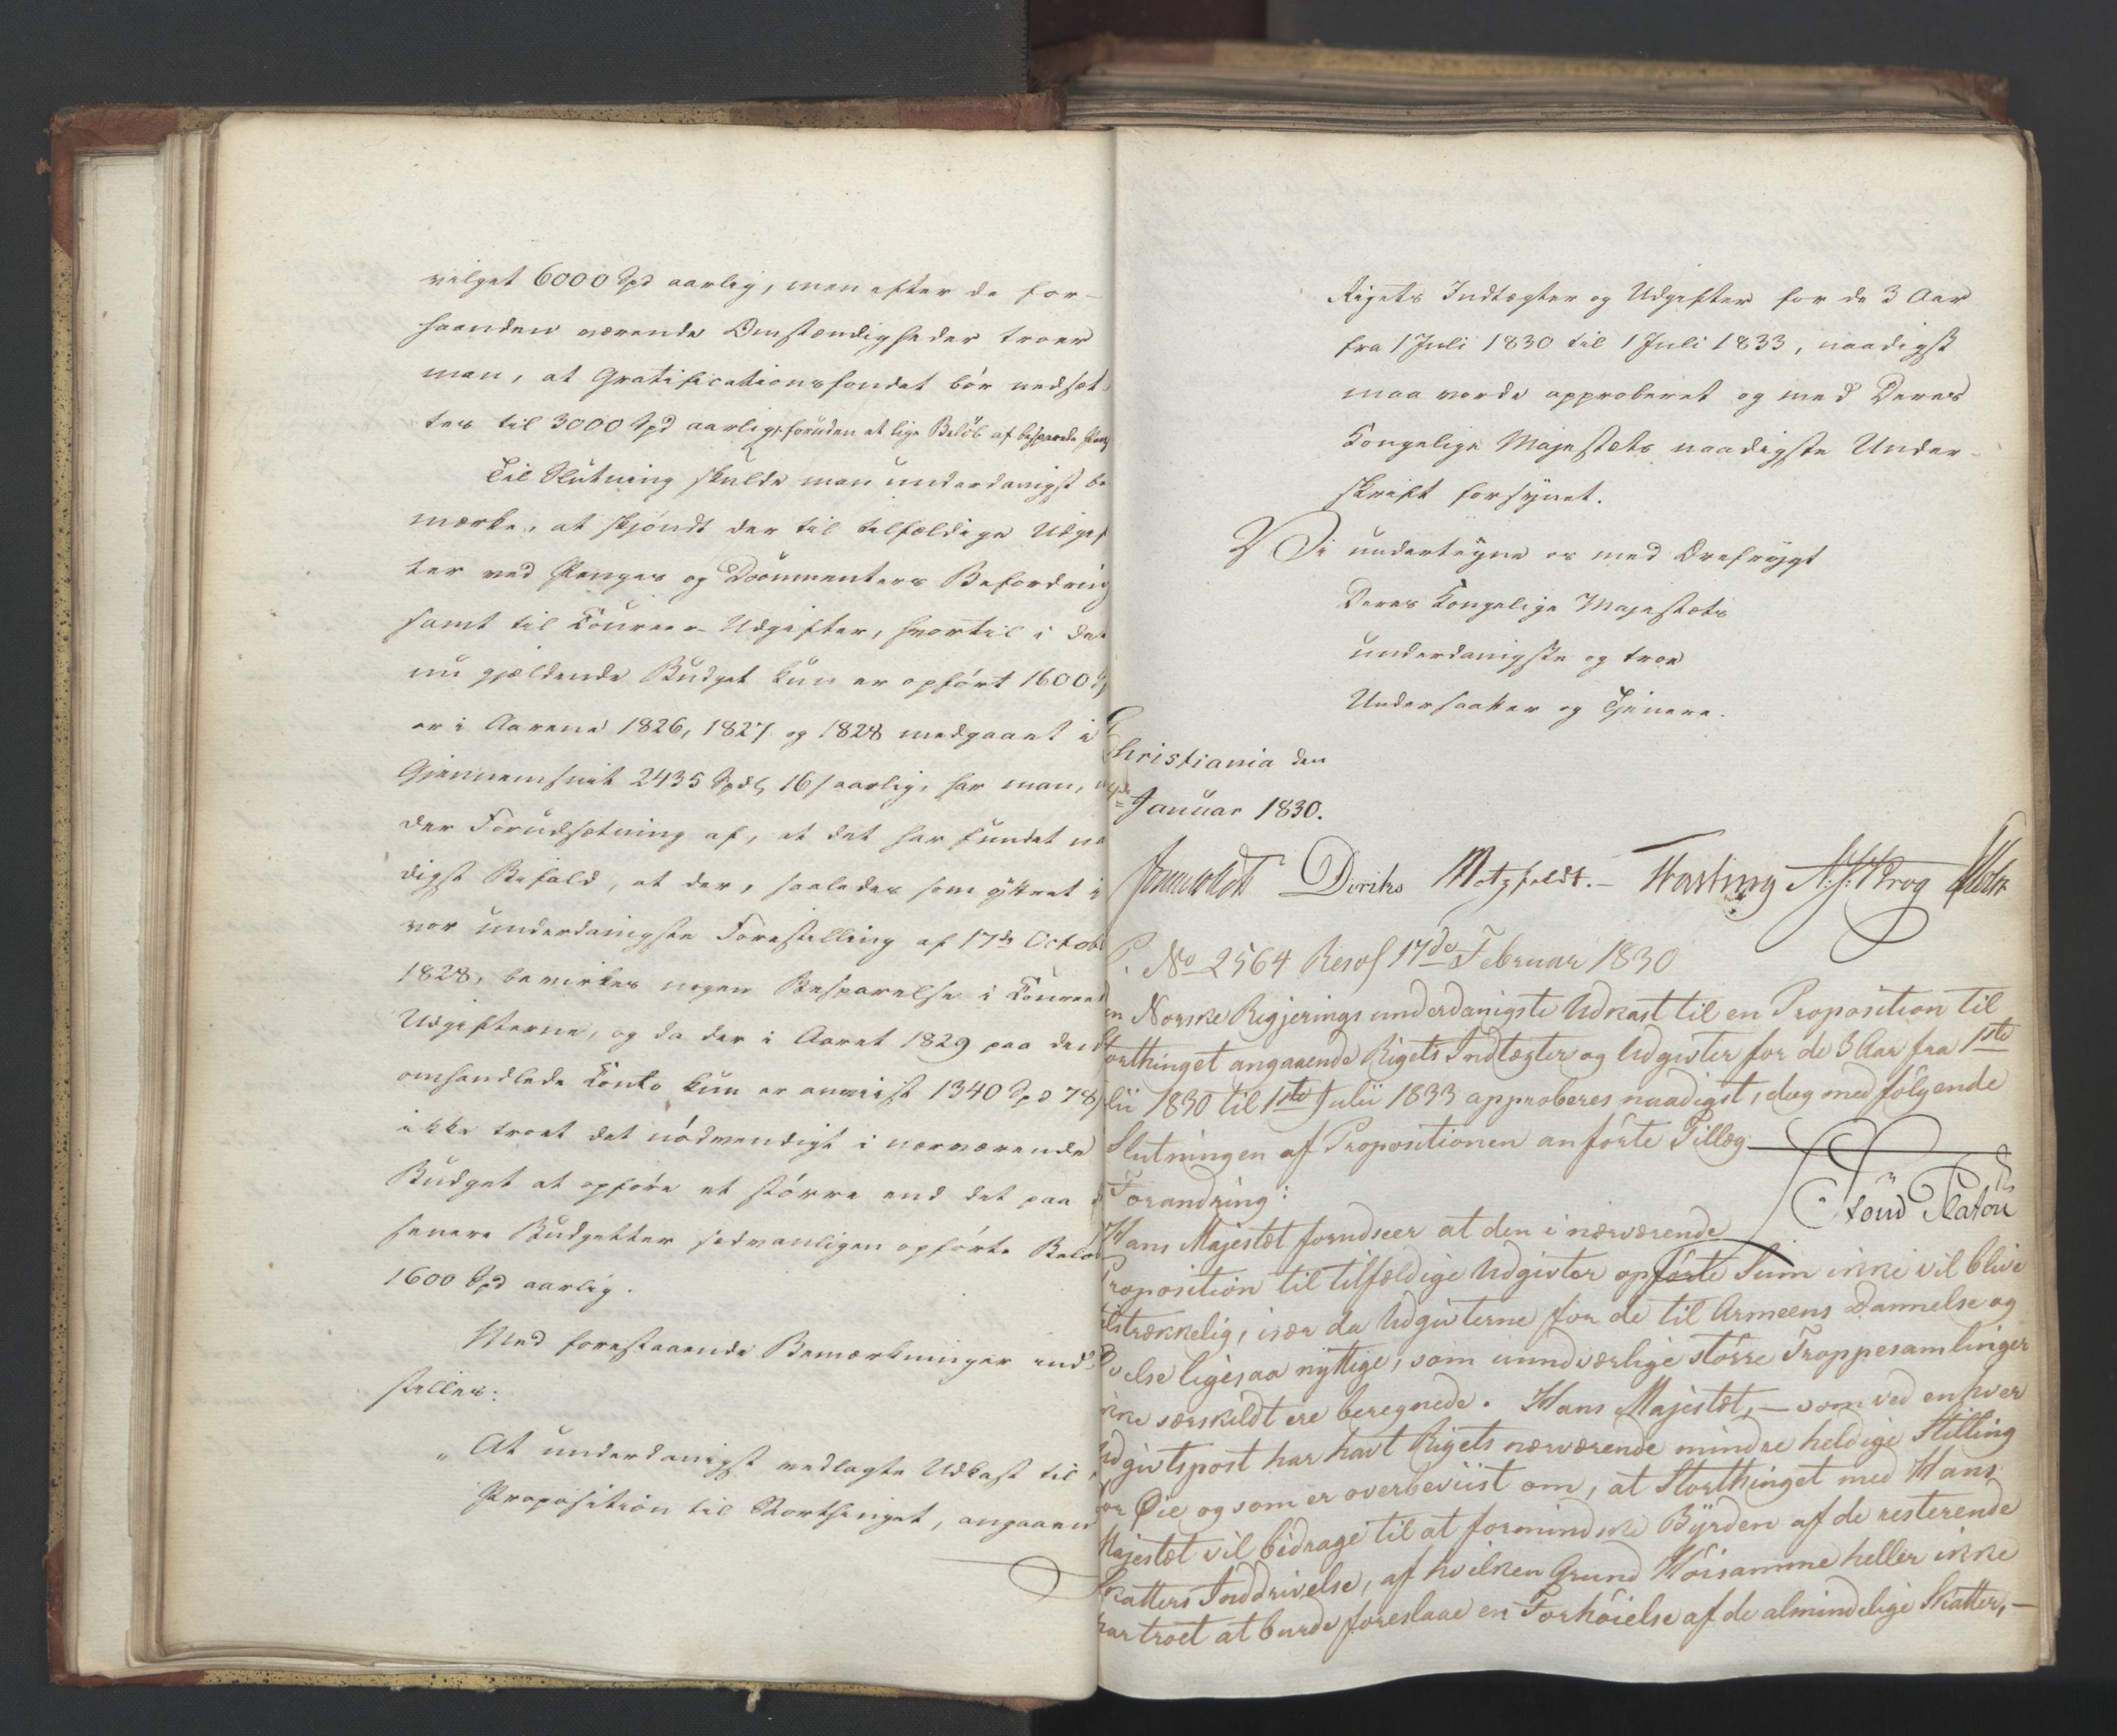 vilget 6000 Spd aarlig, men efter de for-
haanden værende Omstændigheder troer
man, at Gratificationsfondet bör nedsæt-
tes til 3000 Spd aarlig, foruden et lige Belöb af besparede
Til Slutning skulde man underdanigst be
mærke, at skjöndt der til tilfældige Udgif
ter ved Penges og Documenters Befordring
samt til Coureer-Udgifter, hvortil i det
nu gjældende Budget kun er opfört 1600
er i Aarene 1826, 1827 og 1828 medgaaet i
Gjennemsnit 2435 Spd 16 s aarlig, har man,
der Forudsætning af, at det har fundet na
digst Bifald, at der, saaledes som yttret i
vor underdanigste Forestilling af 17de Octob
1828, bevirkes nogen Besparelse i Coureer
Udgifterne, og da der i Aaret 1829 paa den
omhandlede Conto kun er anviist 1340 Spd 78
ikke troet det nödvendigt i nærværende
Budget at opföre et större end det paa d
senere Budgetter sædvanligen opförte Belöb
1600 Spd aarlig.
Med forestaaende Bemærkninger ind-
stilles:
„At underdanigst vedlagte Udkast til
Proposition til Storthinget, angaaen
Rigets Indtægter og Udgifter for de 3 Aar
fra 1 Juli 1830 til 1 Juli 1833, naadigst
maa vorde approberet og med Deres
Kongelige Majestæts naadigste Under-
skrift forsynet.
Vi undertegne os med Ærefrygt
Deres Kongelige Majestæts
underdanigste og troe
Undersaatter og Tjenere.
Christiania den
Januar 1830.
Diriks Motzfeldt.- Fasting Krog
No 2564 Resol 17de Februar 1830
Norske Regjerings underdanigste Udkast til en Proposition til
orthinget angaaende Rigets Indtægter og Udgivter for de 3 Aar fra 1ste
lii 1830 til 1ste Julii 1833 approberes naadigst, dog med følgende
Slutningen af Propositionen anførte Tillæg
Forandring:
Hans Majestæt forudseer at den i nærværende
Proposition til tilfældige Udgivter opførte Sum ikke vil blive
ilstrækkelig, især da Udgivterne for de til Armeens Dannelse og
velse ligesaa nyttige, som uundværlige större Troppesamlinger
ikke særskildt ere beregnede. Hans Majestæt, - som ved enhver
Udgivtspost har havt Rigets nærværende mindre heldige Stilling
for Øie og som er overbeviist om, at Storthinget med Hans
Majestæt vil bidrage til at formindske Byrden af de resterende
Skatters Inddrivelse, af hvilken Grund Høisamme heller ikke
har troet at burde foreslaae en Forhöielse af de almindelige Skatter, -